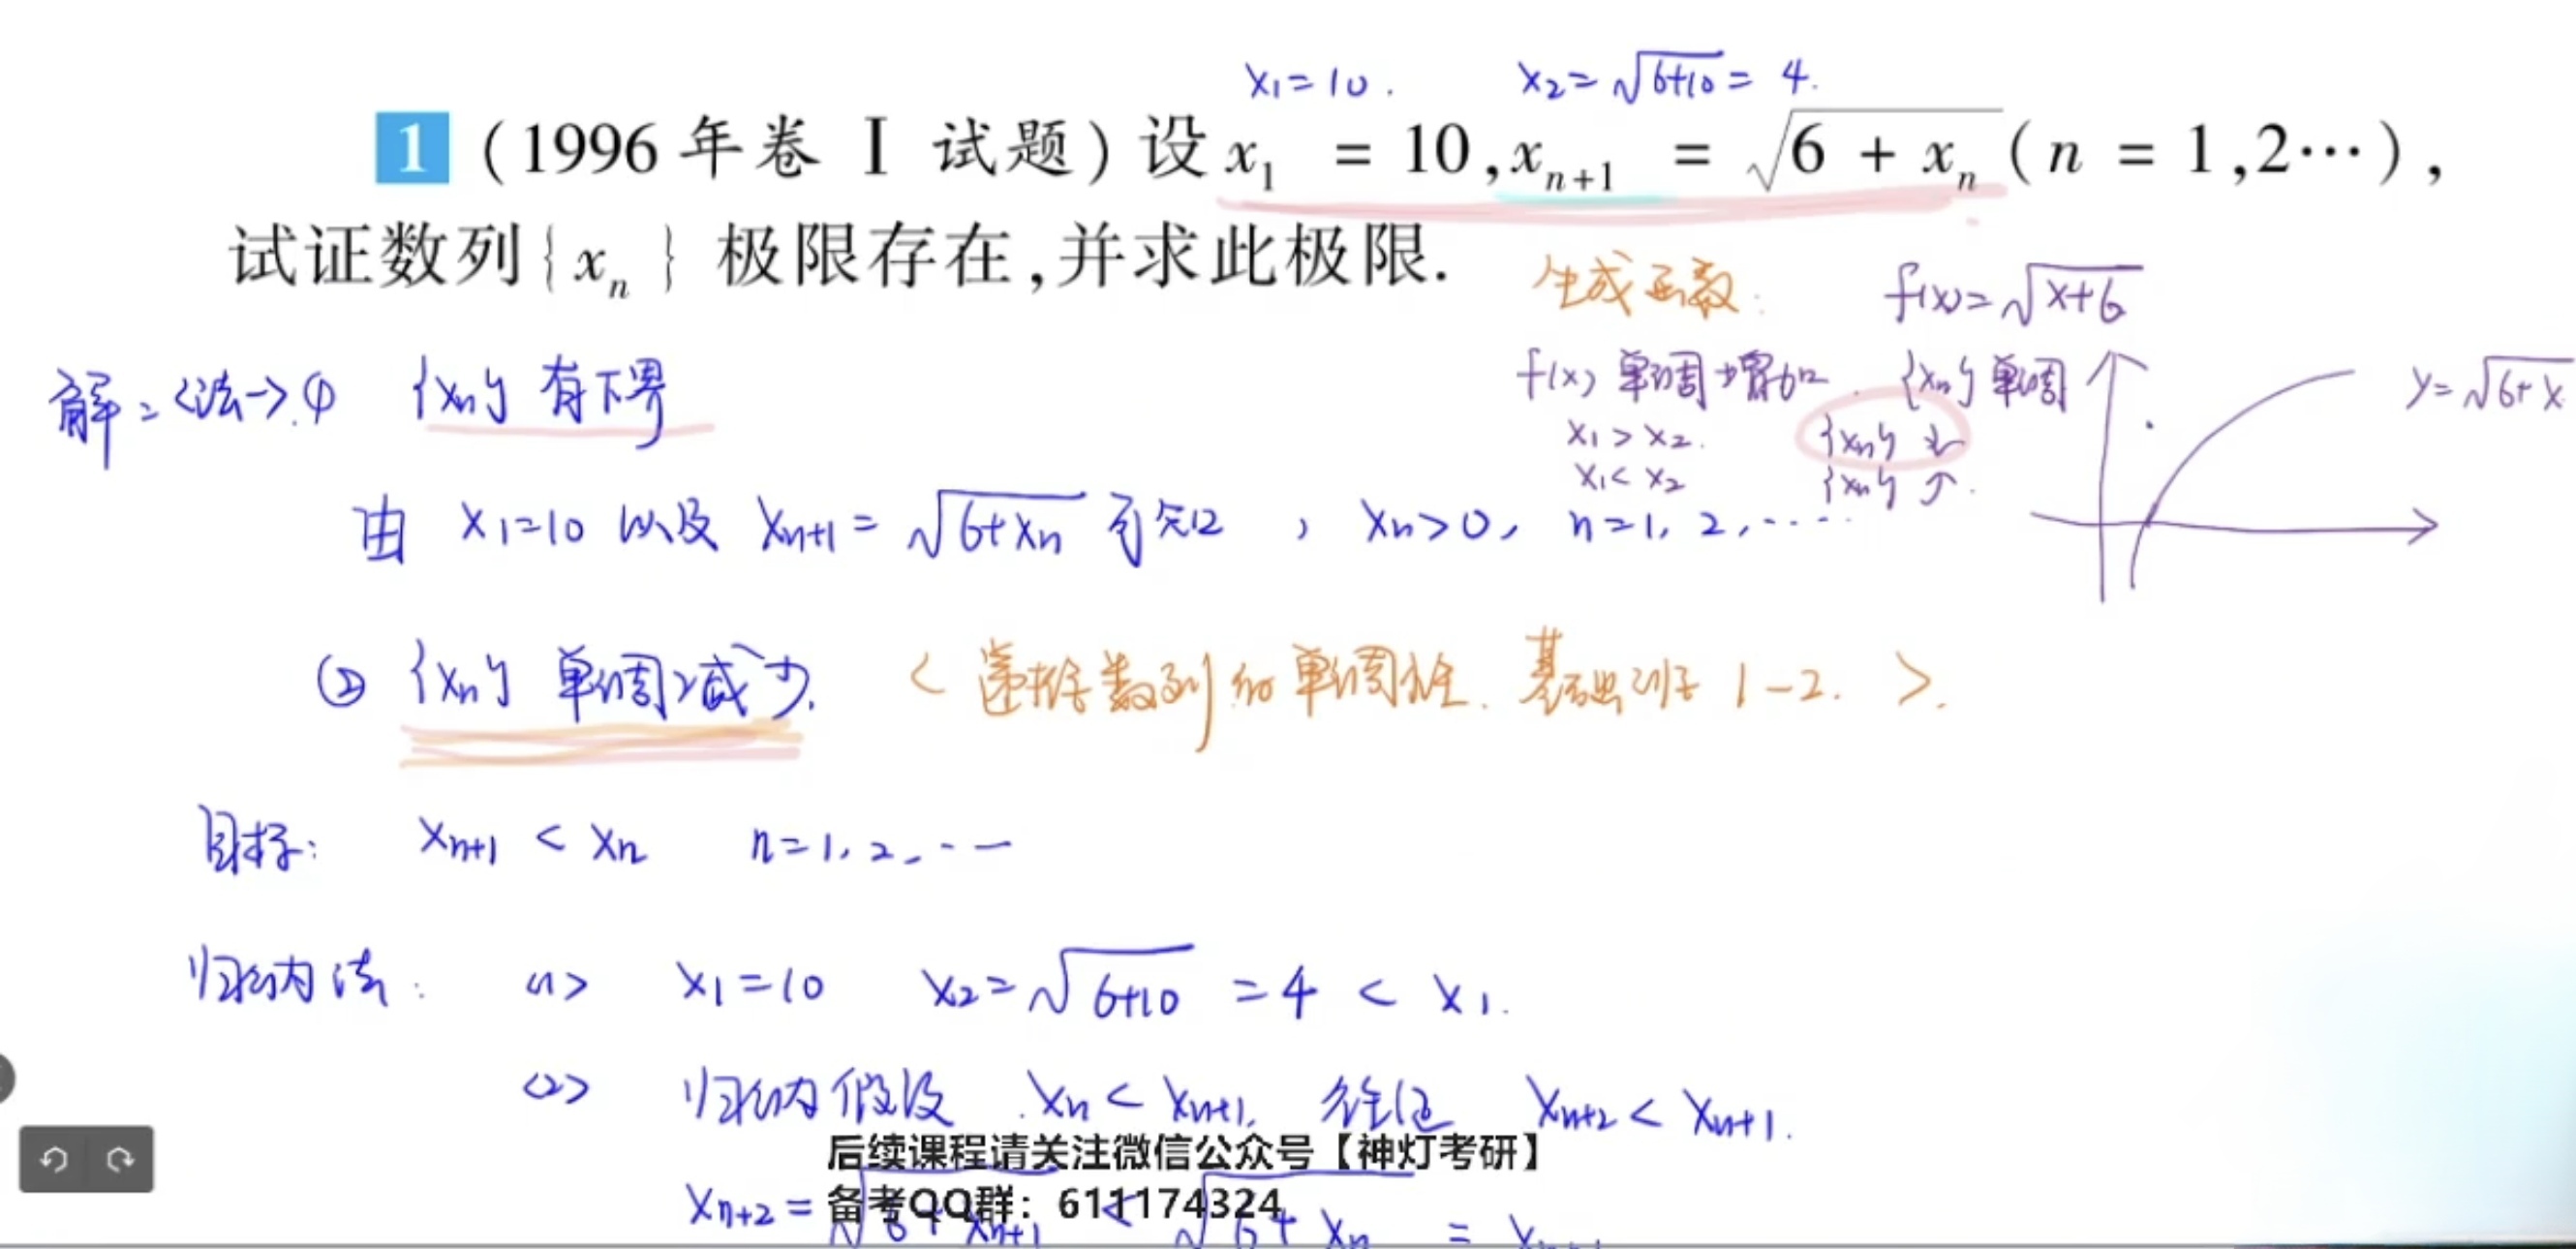 x₁=10. x₂=√(6+10)=4.
1 (1996年卷 Ⅰ 试题)设 x₁ = 10, xₙ₊₁ = √(6 + xₙ) (n = 1,2…),
试证数列{xₙ} 极限存在,并求此极限.
生成函数: f(x)=√(x+6)
解:<法一>.① {xₙ} 有下界
f(x) 单调增加. {xₙ} 单调
y=√(6+x)
x₁ > x₂. {xₙ} ↓
x₁ < x₂ {xₙ} ↑.
由 x₁=10 以及 xₙ₊₁ = √(6+xₙ) 可知 , xₙ>0, n=1, 2, ……
② {xₙ} 单调减少. < 递推数列的单调性. 基础班 1-2. >.
目标: xₙ₊₁ < xₙ n=1, 2, …
归纳法: <1> x₁=10 x₂=√(6+10) =4 < x₁.
<2> 归纳假设 xₙ < xₙ₊₁, 往证 xₙ₊₂ < xₙ₊₁.
后续课程请关注微信公众号【神灯考研】
备考QQ群：611174324
xₙ₊₂ = √(6+xₙ₊₁) < √(6+xₙ) =